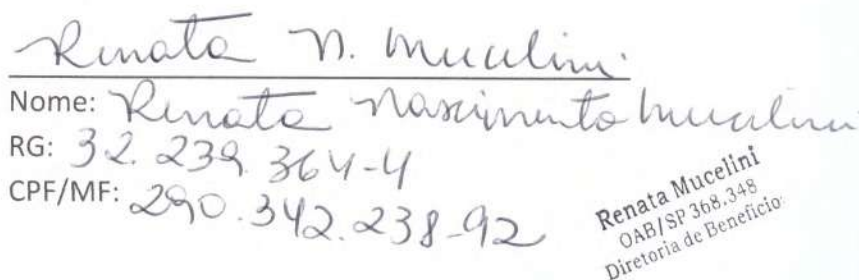 Renata N. Mucelini
Nome: Renata Nascimento Mucelini
RG: 32.239.364-4
CPF/MF: 290.342.238-92
Renata Mucelini
OAB/SP 368.348
Diretoria de Benefício